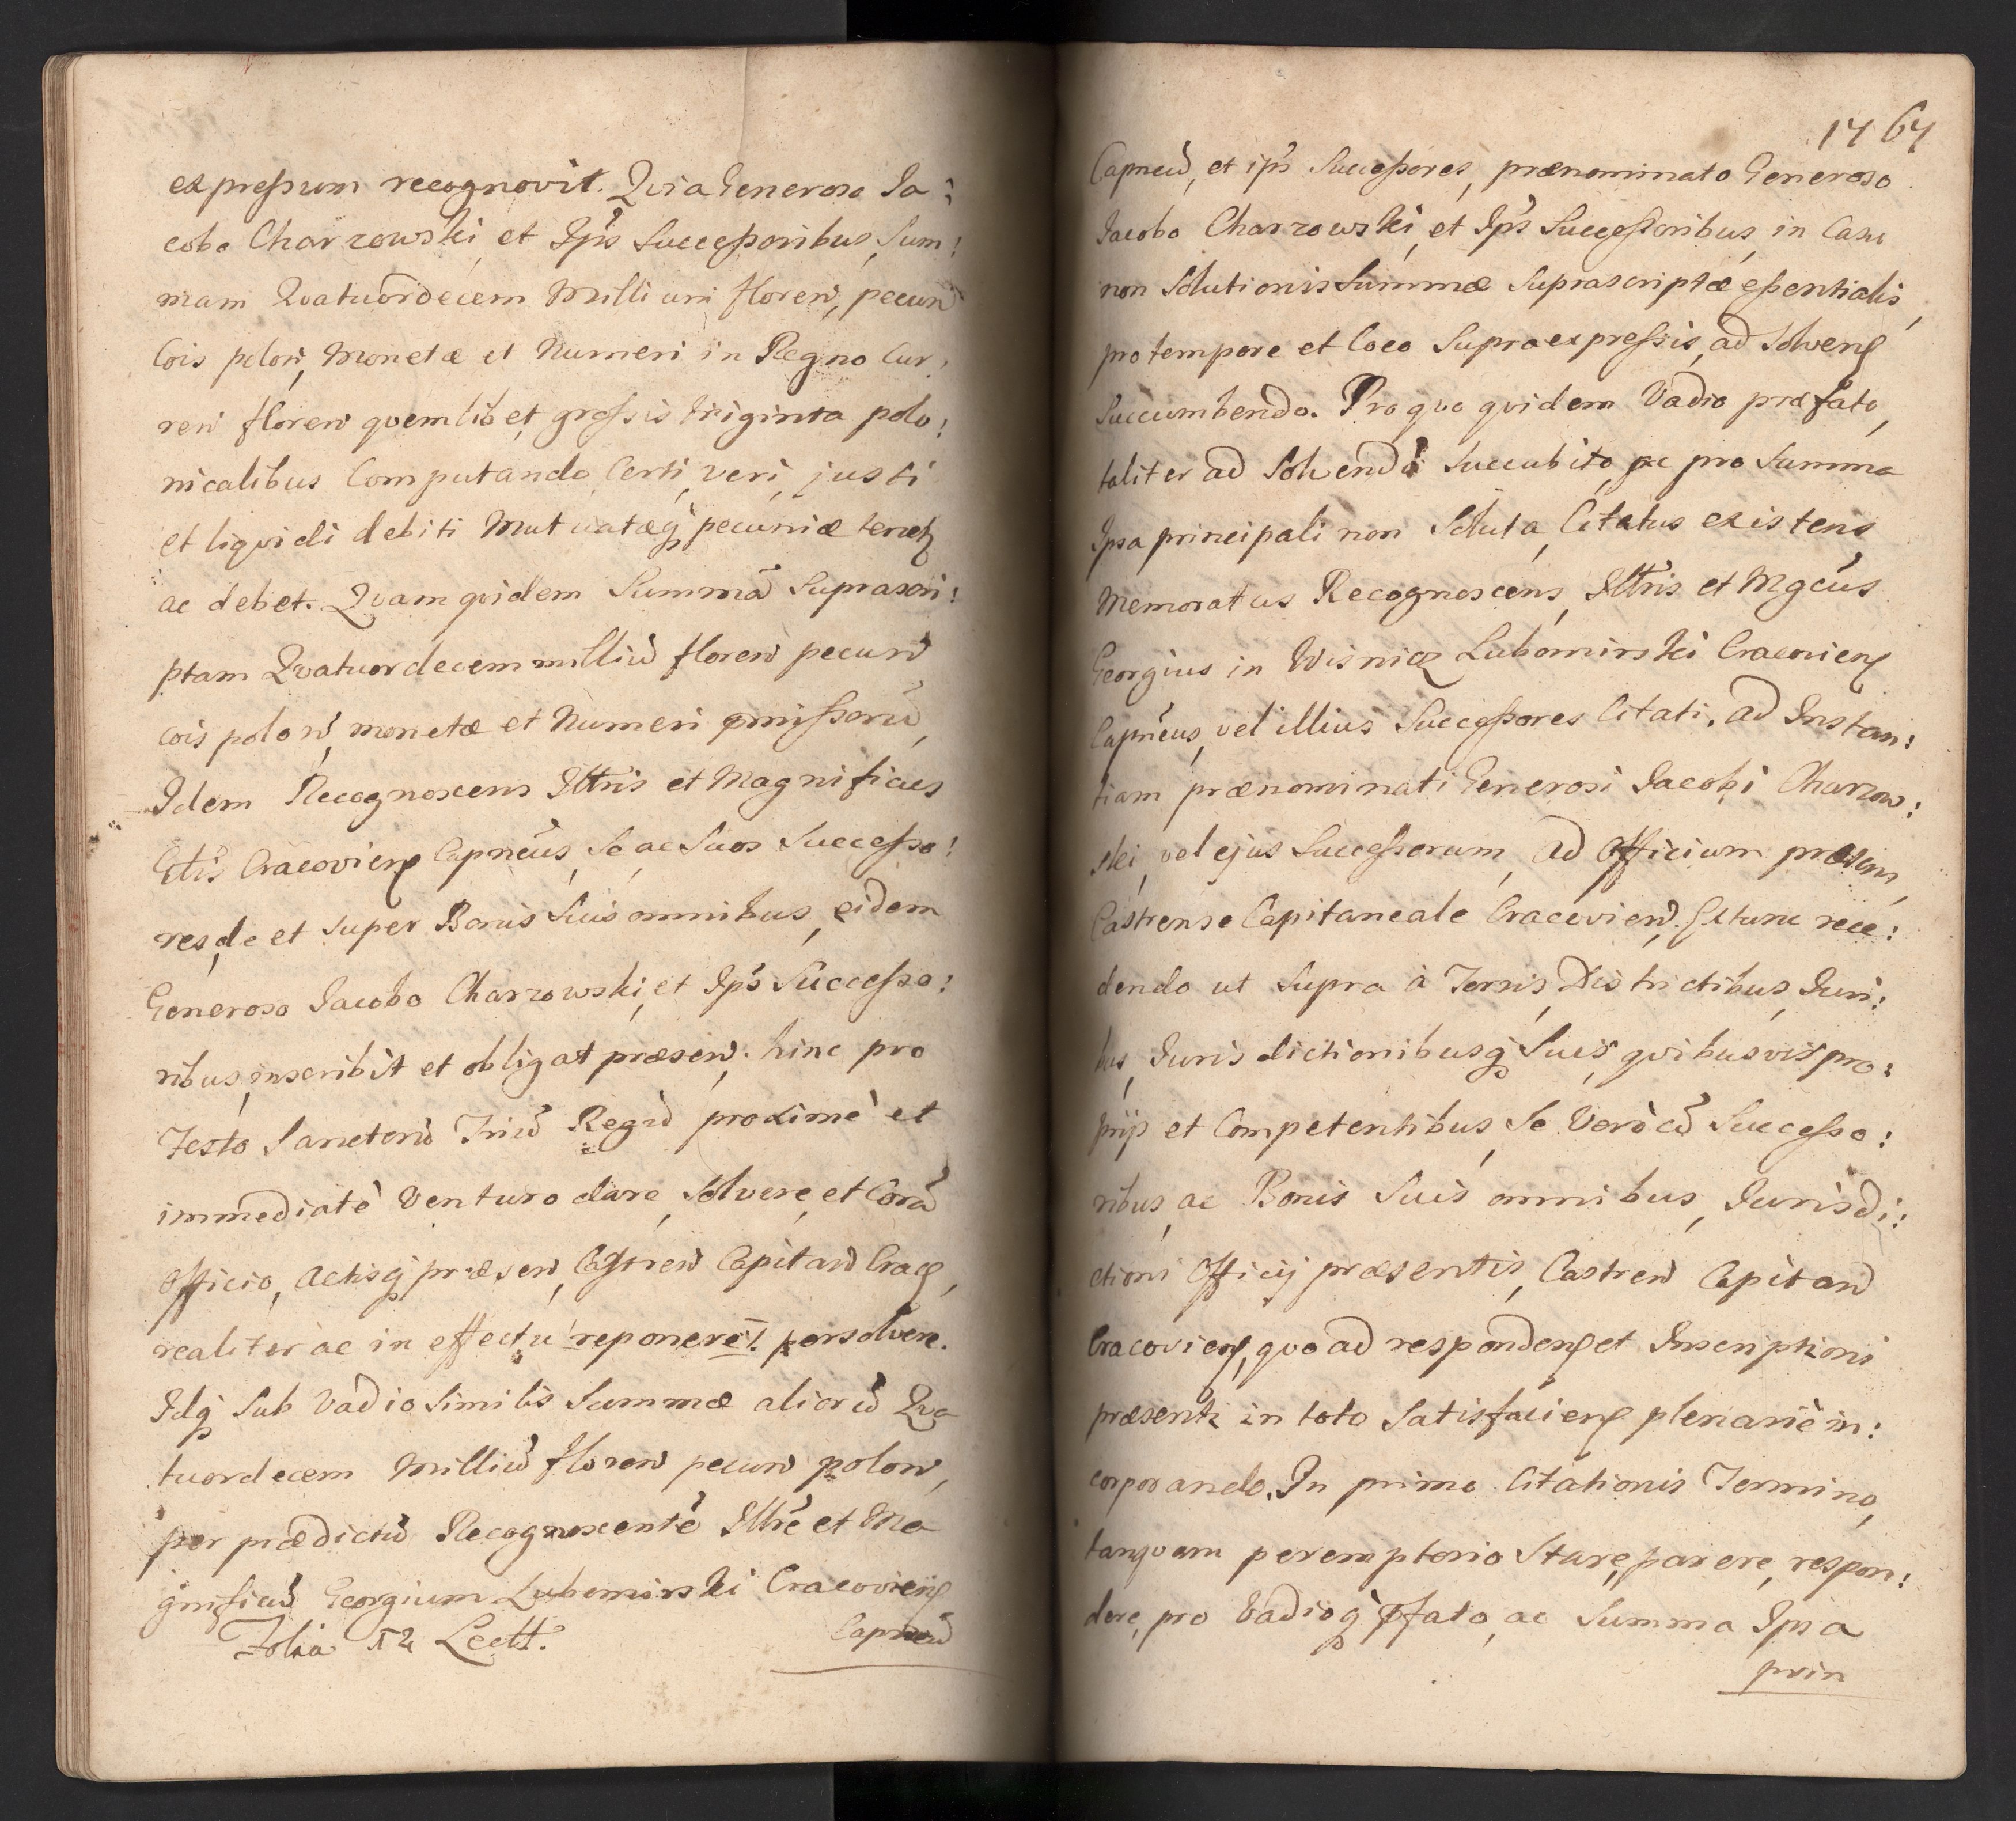 expressum recognovit. Qvia Generoso Ja:
cobo Charzowski, et Ips Successoribus, Sum:
mam Qvatuordecem Millium floren, pecun
Cois polon, Monetæ et Numeri in Regno Cur:
ren floren qvemlibet grossis triginta polo:
nicalibus Computando, Certi, veri, justi
et liqvidi debiti Mutuatæq pecuniæ tenetz
ac debet. Qvam qvidem Summā Suprascri:
ptam Qvatuordecem milliū floren pecun
cois polon, monetæ et Numeri pmissorū,
Idem Recognoscens Illtris et Magnificus
Gtis Cracovien Capneus, Se ac Suos Successo:
res, de et super Bonis Suis omnibus, eidem
Generoso Jacobo Charzowski, et Ips Successo:
ribus, inscribit et obligat præsen. hinc pro
Festo Sanctorū Triū Regū proximè et
immediatè Venturo dare, Solvere, et Corā
Officio, Actisq præsen, Castren Capitan Crac,
realiter ac in effectu reponere /. persolvere.
Idq Sub Vadio Similis Summæ aliorū Qva
tuordecem Milliū floren pecun polon,
per prædictū Recognoscentē Illtrē et Ma
gnificū Georgium Lubomirski Cracovien
Folia 52 Lectt. Capneū
1767
Capneū, et ips Successores, prænominato Generoso
Jacobo Charzowski, et Ips Successoribus, in Casu
non Solutionis Summæ Suprascriptæ essentialis,
pro tempore et Loco Supra expressis, ad Solven
Succumbendo. Pro qvo qvidem Vadio præfato,
taliter ad Solvendū Succubito, ac pro Summa
Ipsa principali non Soluta, Citatus existens
Memoratus Recognoscens, Illtris et Mgcus
Georgius in Wisnicz Lubomirski Cracovien
Capneus, vel illius Successores Citati, ad Instan:
tiam prænominati Generosi Jacobi Charzow:
ski, vel ejus Successorum, ad Officium præsens,
Castrense Capitaneale Cracovien. Et tunc rece:
dendo ut Supra à Terris, Districtibus, Juri:
bus, Jurisdictionibusq Suis, qvibusvis pro:
prijs et Competentibus, Se Verò cū Successo:
ribus, ac Bonis Suis omnibus, Jurisdi:
ctioni Officij præsentis, Castren Capitan
Cracovien, qvo ad responden et Inscriptioni
præsenti in toto Satisfacien plenariè in:
corporando. In primo Citationis Termino,
tanqvam peremptorio Stare, parere, respon:
dere, pro Vadioq pfato, ac Summa Ipsa
prin